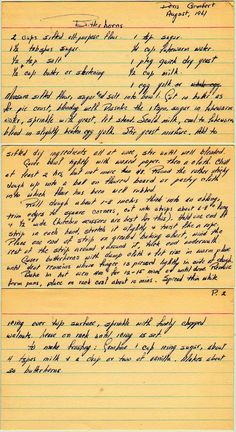 Doris Grunbert
August, 1961
Butterhorns
2 cups sifted all-purpose flour
1 tsp sugar
1½ tablsps sugar
¼ cup lukewarm water
½ tsp salt
1 pkg quick dry yeast
½ cup butter or shortening
½ cup milk
1 egg yolk or whole egg
Measure sifted flour, sugar and salt into bowl. Cut in butter as
for pie crust, blending well. Dissolve the 1 tsp. sugar in lukewarm
water, sprinkle with yeast, let stand. Scald milk, cool to lukewarm,
blend in slightly beaten egg yolk. Stir yeast mixture. Add to
sifted dry ingredients all at once, stir until well blended.
Cover bowl tightly with waxed paper, then a cloth. Chill
at least 2 hrs, but not more than 24. Pound the rather stiff
dough out onto a bed on floured board or pastry cloth
into which flour has been well rubbed.
Roll dough about 12 inches thick into an oblong,
trim edges to square corners, cut into strips about 6 by
½ inch (kitchen scissors are best for this). Hold one end of
strip in each hand, stretch it slightly & twist like a rope.
Place one end of strip on greased baking sheet, wind the
rest of the strip round & around it, tuck end underneath.
Cover butterhorns with dough cloth & let rise in warm place
until dent remains when finger is pressed lightly in side of dough.
Bake in hot oven 400° for 12-15 min or until done. Remove
from pans, place on rack cool about 10 min. Spread thin white
P. 2
icing over top surface, sprinkle with finely chopped
walnuts. Leave on rack until icing is set.
to make frosting: Combine 1 cup icing sugar, about
4 tsps milk & a drop or two of vanilla. Makes about
20 butterhorns